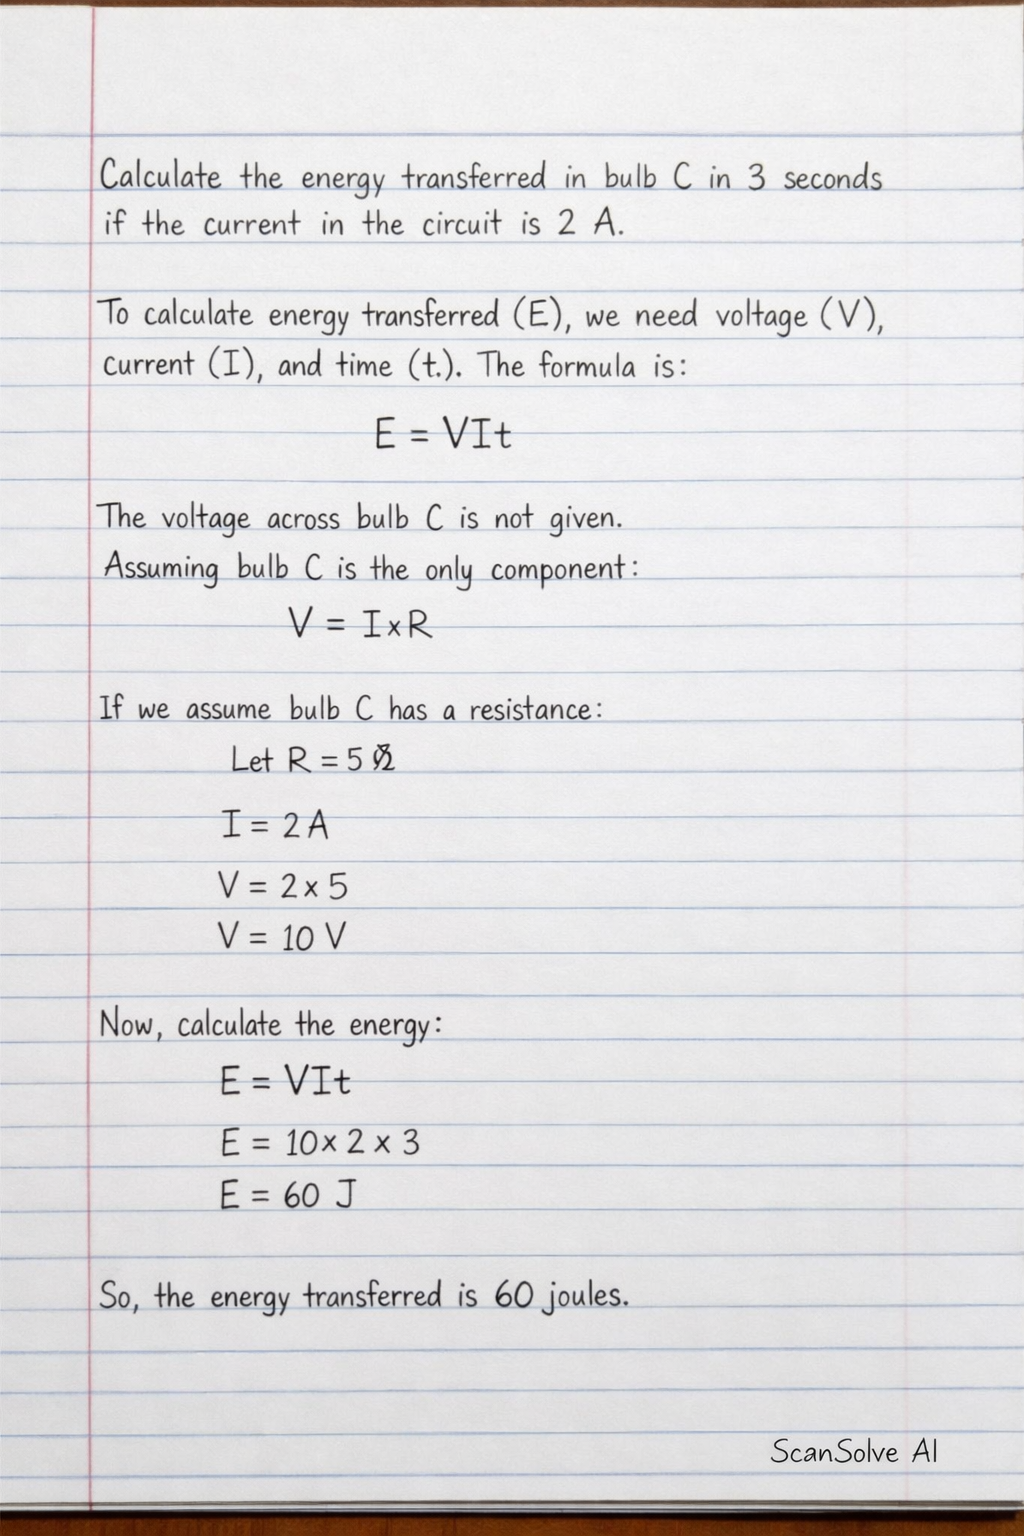 Calculate the energy transferred in bulb C in 3 seconds
if the current in the circuit is 2 A.
To calculate energy transferred (E), we need voltage (V),
current (I), and time (t.). The formula is:
E = VIt
The voltage across bulb C is not given.
Assuming bulb C is the only component:
V = I×R
If we assume bulb C has a resistance:
Let R = 5
I = 2 A
V = 2 × 5
V = 10 V
Now, calculate the energy:
E = VIt
E = 10 × 2 × 3
E = 60 J
So, the energy transferred is 60 joules.
ScanSolve AI